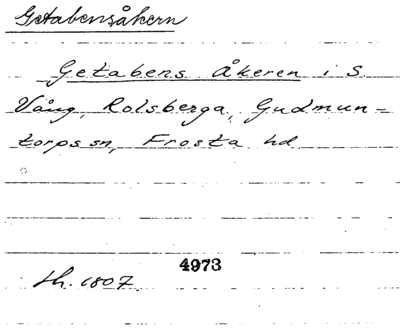 Getabensåkern
Getabens Åkeren i S.
Vång, Rolsberga, Gudmun-
torps sn, Frosta hd
4973
Lh. 1807.